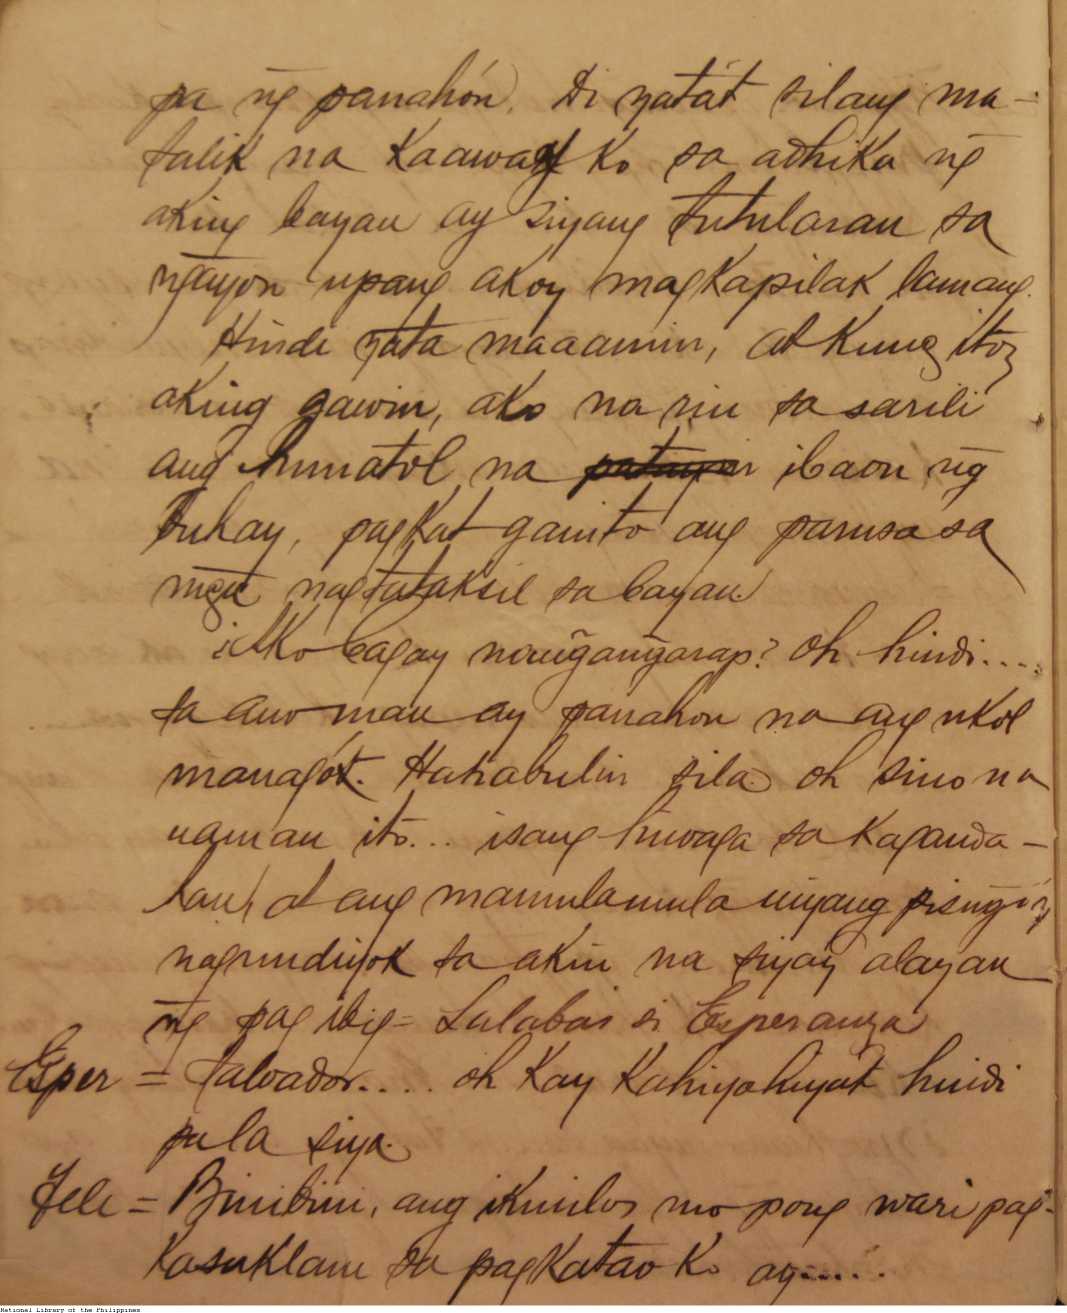 pa n͠g panahón. Di yatát silang ma-
talik na Kaaway Ko sa adhika n͠g
aking bayan ay siyang tutularan sa
n͠gayon upang akoy magKapilak lamang.
Hindi yata maaamin, at Kung itoy
aking gawin, ako na rin sa sarili
ang humatol na ibaon n͠g
buhay, pagKat ganito ang parusa sa
mg̃a nagtataksil sa bayan
¿Ako bagay nan͠gan͠garap? Oh hindi....
sa ano man ay panahon na ang ukol
managót. Hahabulin sila. oh sino na
naman itó... isang hiwaga sa Kaganda-
han, at ang mamulamula niyang pisn͠gi'y
nagpa sa akin na siyay alayan
n͠g pag ibig = Lalabas si Esperanza
Esper = Salvador.... oh Kay Kahiyahiyat hindi
pala siya.
Fele = Binibini, ang ikinilos mo pong wari pag-
Kasuklam sa pagKatao Ko ay.....
National Library of the Philippines